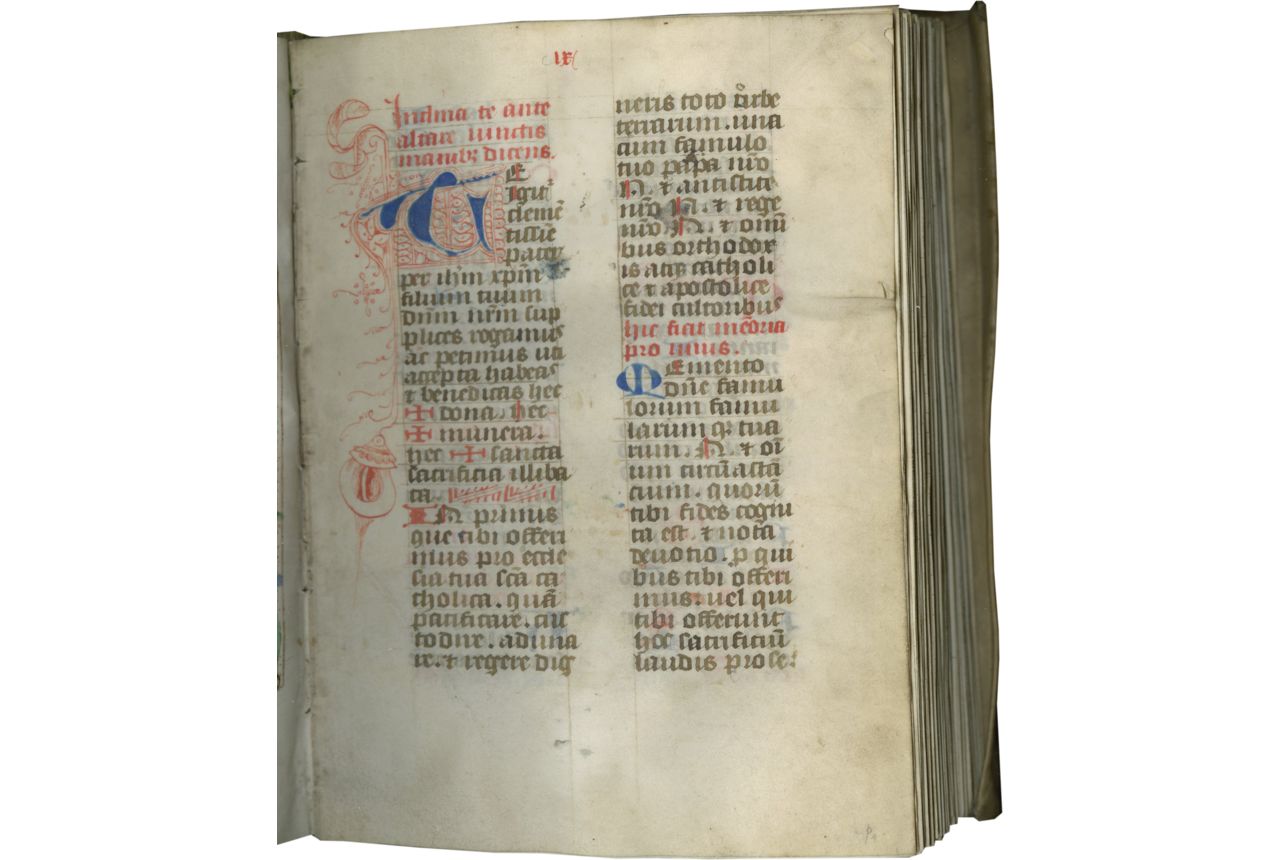 ix
Inclina te ante
altare iunctis
manibꝫ dicens.
TE
igit᷑
clemē
tissie̅
pater
per ihm̅ xp̅m
filium tuum
dnm̅ nrm̅ sup
plices rogamus
ac petimus uti
accepta habeas
⁊ benedicas hec
✠ dona. hec
✠ munera.
hec ✠ sancta
sacrificia illiba
ta.
IN primis
que tibi offeri
mus pro eccle
sia tua sc̅a ca
tholica. quā
pacificare. cus
todire. aduna
re. ⁊ regere dig
neris toto orbe
terrarum. una
cum famulo
tuo papa nr̅o
N. ⁊ antistite
nr̅o N. ⁊ rege
nr̅o N. ⁊ omī
bus orthodox
is atqꝫ catholi
ce ⁊ apostolice
fidei cultoribus
hic fiat me̅oria
pro uiuis.
MEmento
dn̅e famu
lorum famu
larum qꝫ tua
rum. N. ⁊ oī
um circūastā
cium. quorū
tibi fides cogni
ta est. ⁊ nota
deuotio. ꝓ qui
bus tibi offeri
mus. uel qui
tibi offerunt
hoc sacrificiū
laudis pro se.